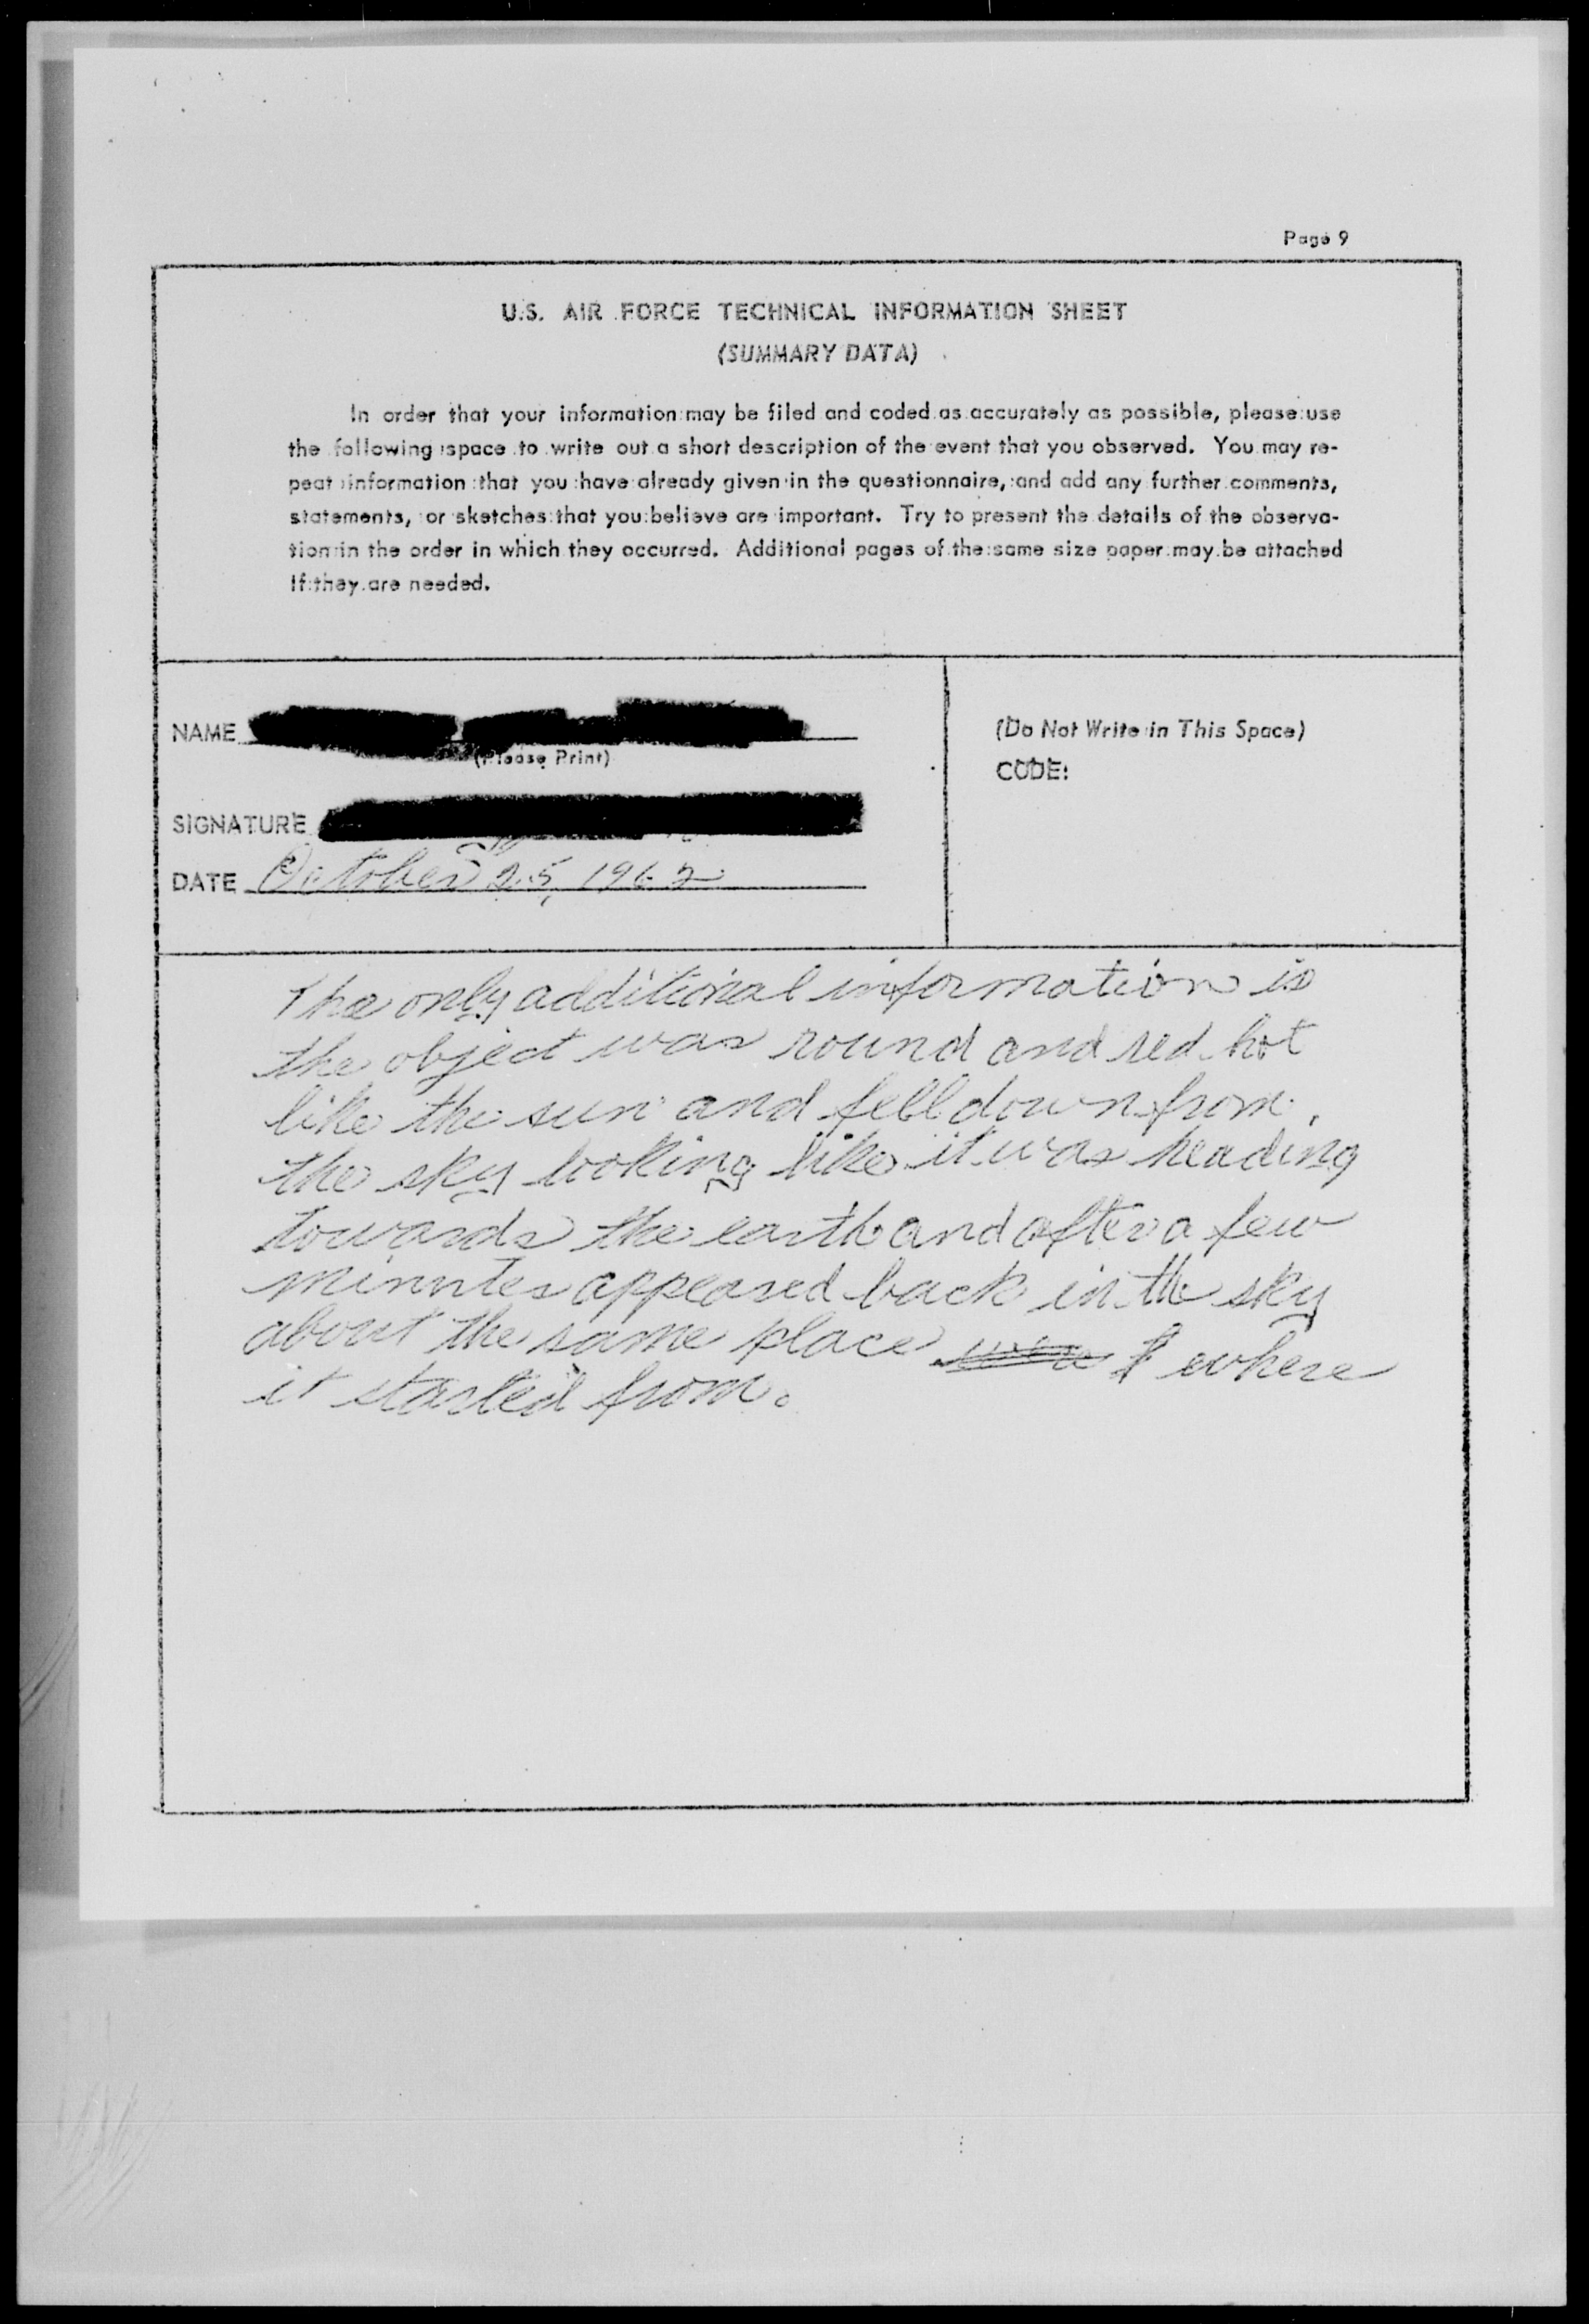 Page 9
U.S. AIR FORCE TECHNICAL INFORMATION SHEET
(SUMMARY DATA)
In order that your information may be filed and coded as accurately as possible, please use
the following space to write out a short description of the event that you observed. You may re-
peat information that you have already given in the questionnaire, and add any further comments,
statements, or sketches that you believe are important. Try to present the details of the observa-
tion in the order in which they occurred. Additional pages of the same size paper may be attached
If they are needed.
NAME
(Please Print)
(Do Not Write in This Space)
CODE:
SIGNATURE
DATE October 25, 1962
The only additional information is
the object was round and red hot
like the sun and fell down from
the sky looking like it was heading
towards the earth and after a few
minutes appeared back in the sky
about the same place where
it started from.